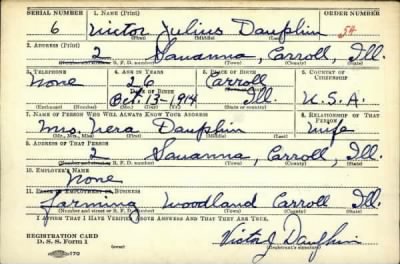 SERIAL NUMBER 1. NAME (Print) ORDER NUMBER
6 Victor Julius Dauphin
(First) (Middle) (Last)
2. ADDRESS (Print)
2 Savanna, Carroll, Ill.
(Number and street or R. F. D. number) (Town) (County) (State)
3. TELEPHONE 4. AGE IN YEARS 5. PLACE OF BIRTH 6. COUNTRY OF CITIZENSHIP
None 26 Carroll
DATE OF BIRTH
Oct. 13-1914 Ill. U.S.A.
7. NAME OF PERSON WHO WILL ALWAYS KNOW YOUR ADDRESS 8. RELATIONSHIP OF THAT PERSON
Mrs. Vera Dauphin Wife
(Mr., Mrs., Miss) (First) (Middle) (Last)
9. ADDRESS OF THAT PERSON
2 Savanna, Carroll, Ill.
(Number and street or R. F. D. number) (Town) (County) (State)
10. EMPLOYER'S NAME
None
11. PLACE OF EMPLOYMENT OR BUSINESS
farming Woodland Carroll Ill.
(Number and street or R. F. D. number) (Town) (County) (State)
I AFFIRM THAT I HAVE VERIFIED ABOVE ANSWERS AND THAT THEY ARE TRUE.
REGISTRATION CARD
D. S. S. Form 1 Victor J Dauphin
(Registrant's signature)